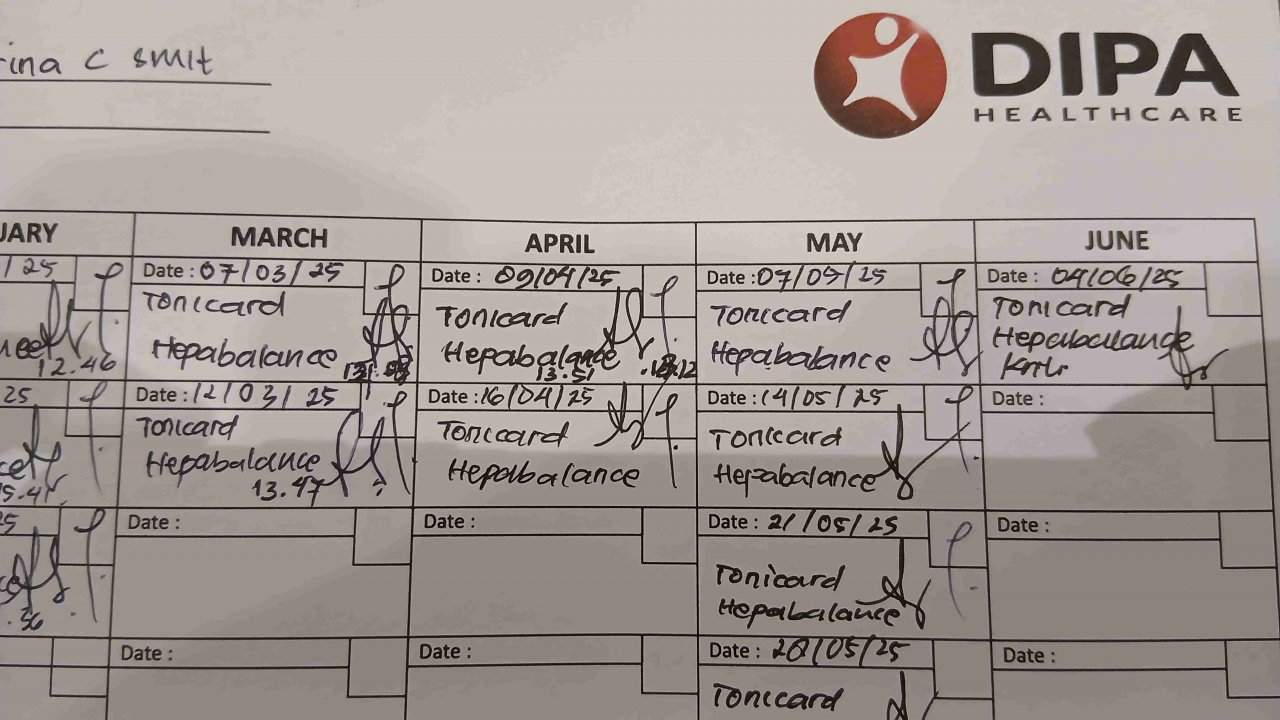 rina C smit
DIPA
HEALTHCARE
UARY MARCH APRIL MAY JUNE
/ 25 Date : 07/03/25 Date : 09/04/25 Date : 07/05/25 Date : 04/06/25
Tonicard Tonicard Tonicard Tonicard
Hepabalance Hepabalance Hepabalance Hepabalance
12.46 13.51
25 Date : 12/03/25 Date : 16/04/25 Date : 14/05/25 Date :
Tonicard Tonicard Tonicard
Hepabalance Hepabalance Hepabalance
13.47
Date : Date : Date : 21/05/25 Date :
Tonicard
Hepabalance
Date : Date : Date : 28/05/25 Date :
Tonicard